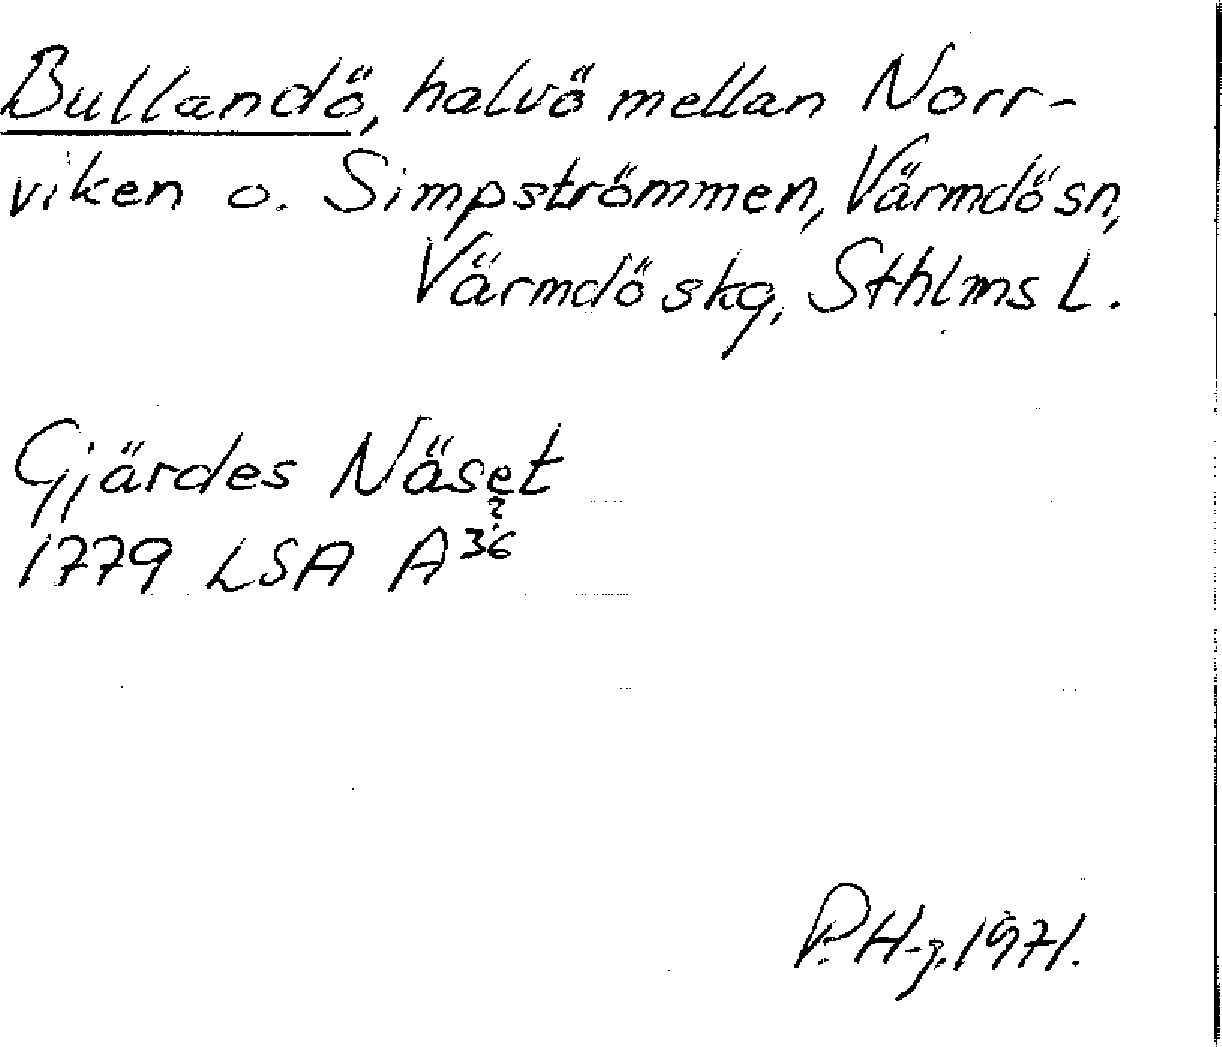 Bullandö, halvö mellan Norr-
viken o. Simpströmmen, Värmdö sn,
Värmdö skg, Sthlms L.
Gjärdes Näset
1779 LSA A 36
?
P. H-g. 1971.